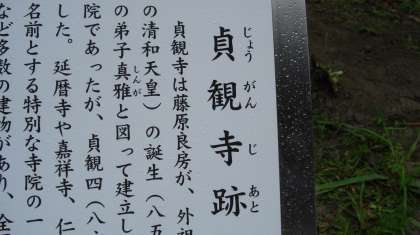 貞観寺跡
じょうがんじあと
貞観寺は藤原良房が、外祖
の清和天皇)の誕生(八五
の弟子真雅と図って建立し
しんが
院であったが、貞観四(八、
した。延暦寺や嘉祥寺、仁
名前とする特別な寺院の一
など多数の建物があり、全